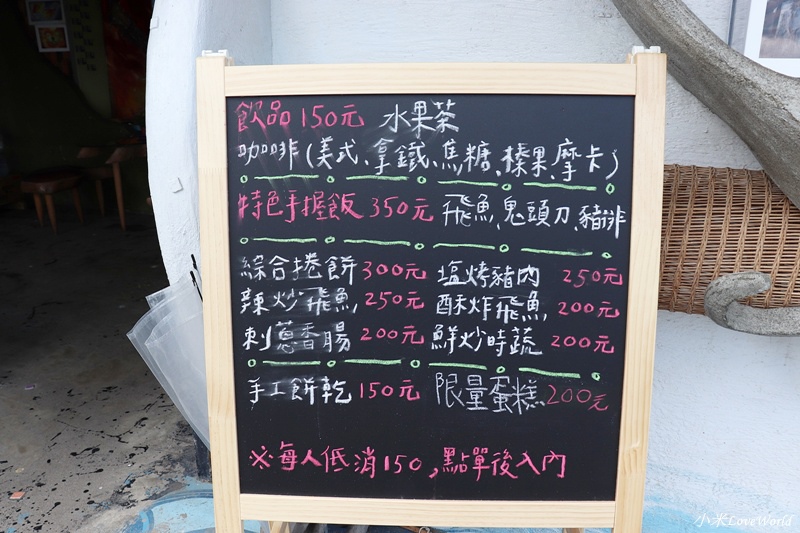 飲品150元 水果茶
咖啡(美式、拿鐵、焦糖、榛果、摩卡)
特色手握飯350元 飛魚、鬼頭刀、豬排
綜合捲餅300元 塩烤豬肉 250元
辣炒飛魚, 250元 酥炸飛魚, 200元
刺蔥香腸 200元 鮮炒時蔬 200元
手工餅乾 150元 限量蛋糕 200元
※每人低消150,點單後入內
小米LoveWorld